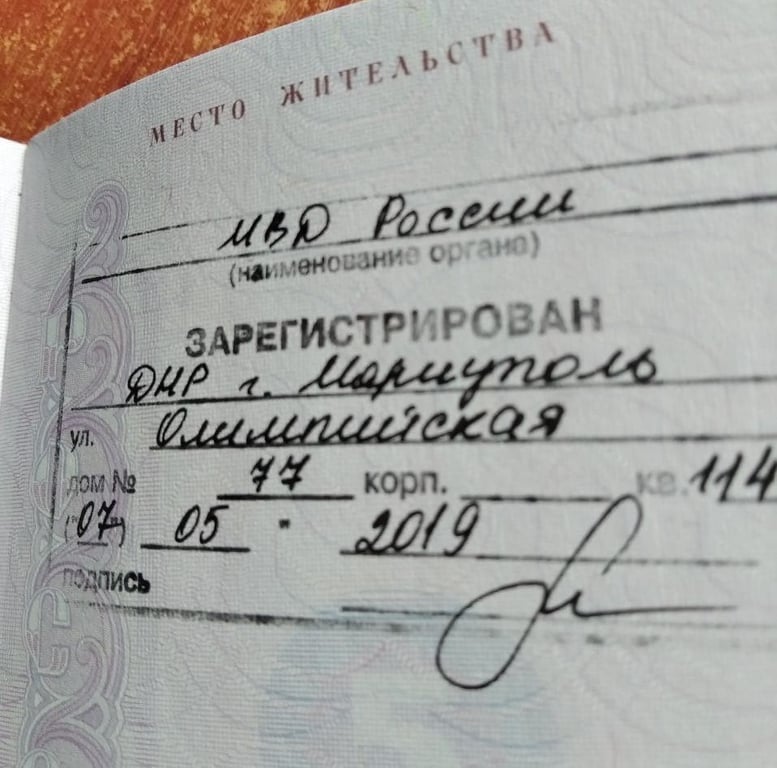 МЕСТО ЖИТЕЛЬСТВА
МВД России
(наименование органа)
ЗАРЕГИСТРИРОВАН
ДНР г. Мариуполь
ул. Олимпийская
дом № 77 корп. кв. 114
("07") 05 " 2019
подпись